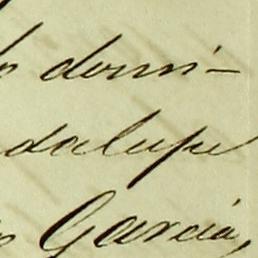 lo domi-
dalupe
Garcia,